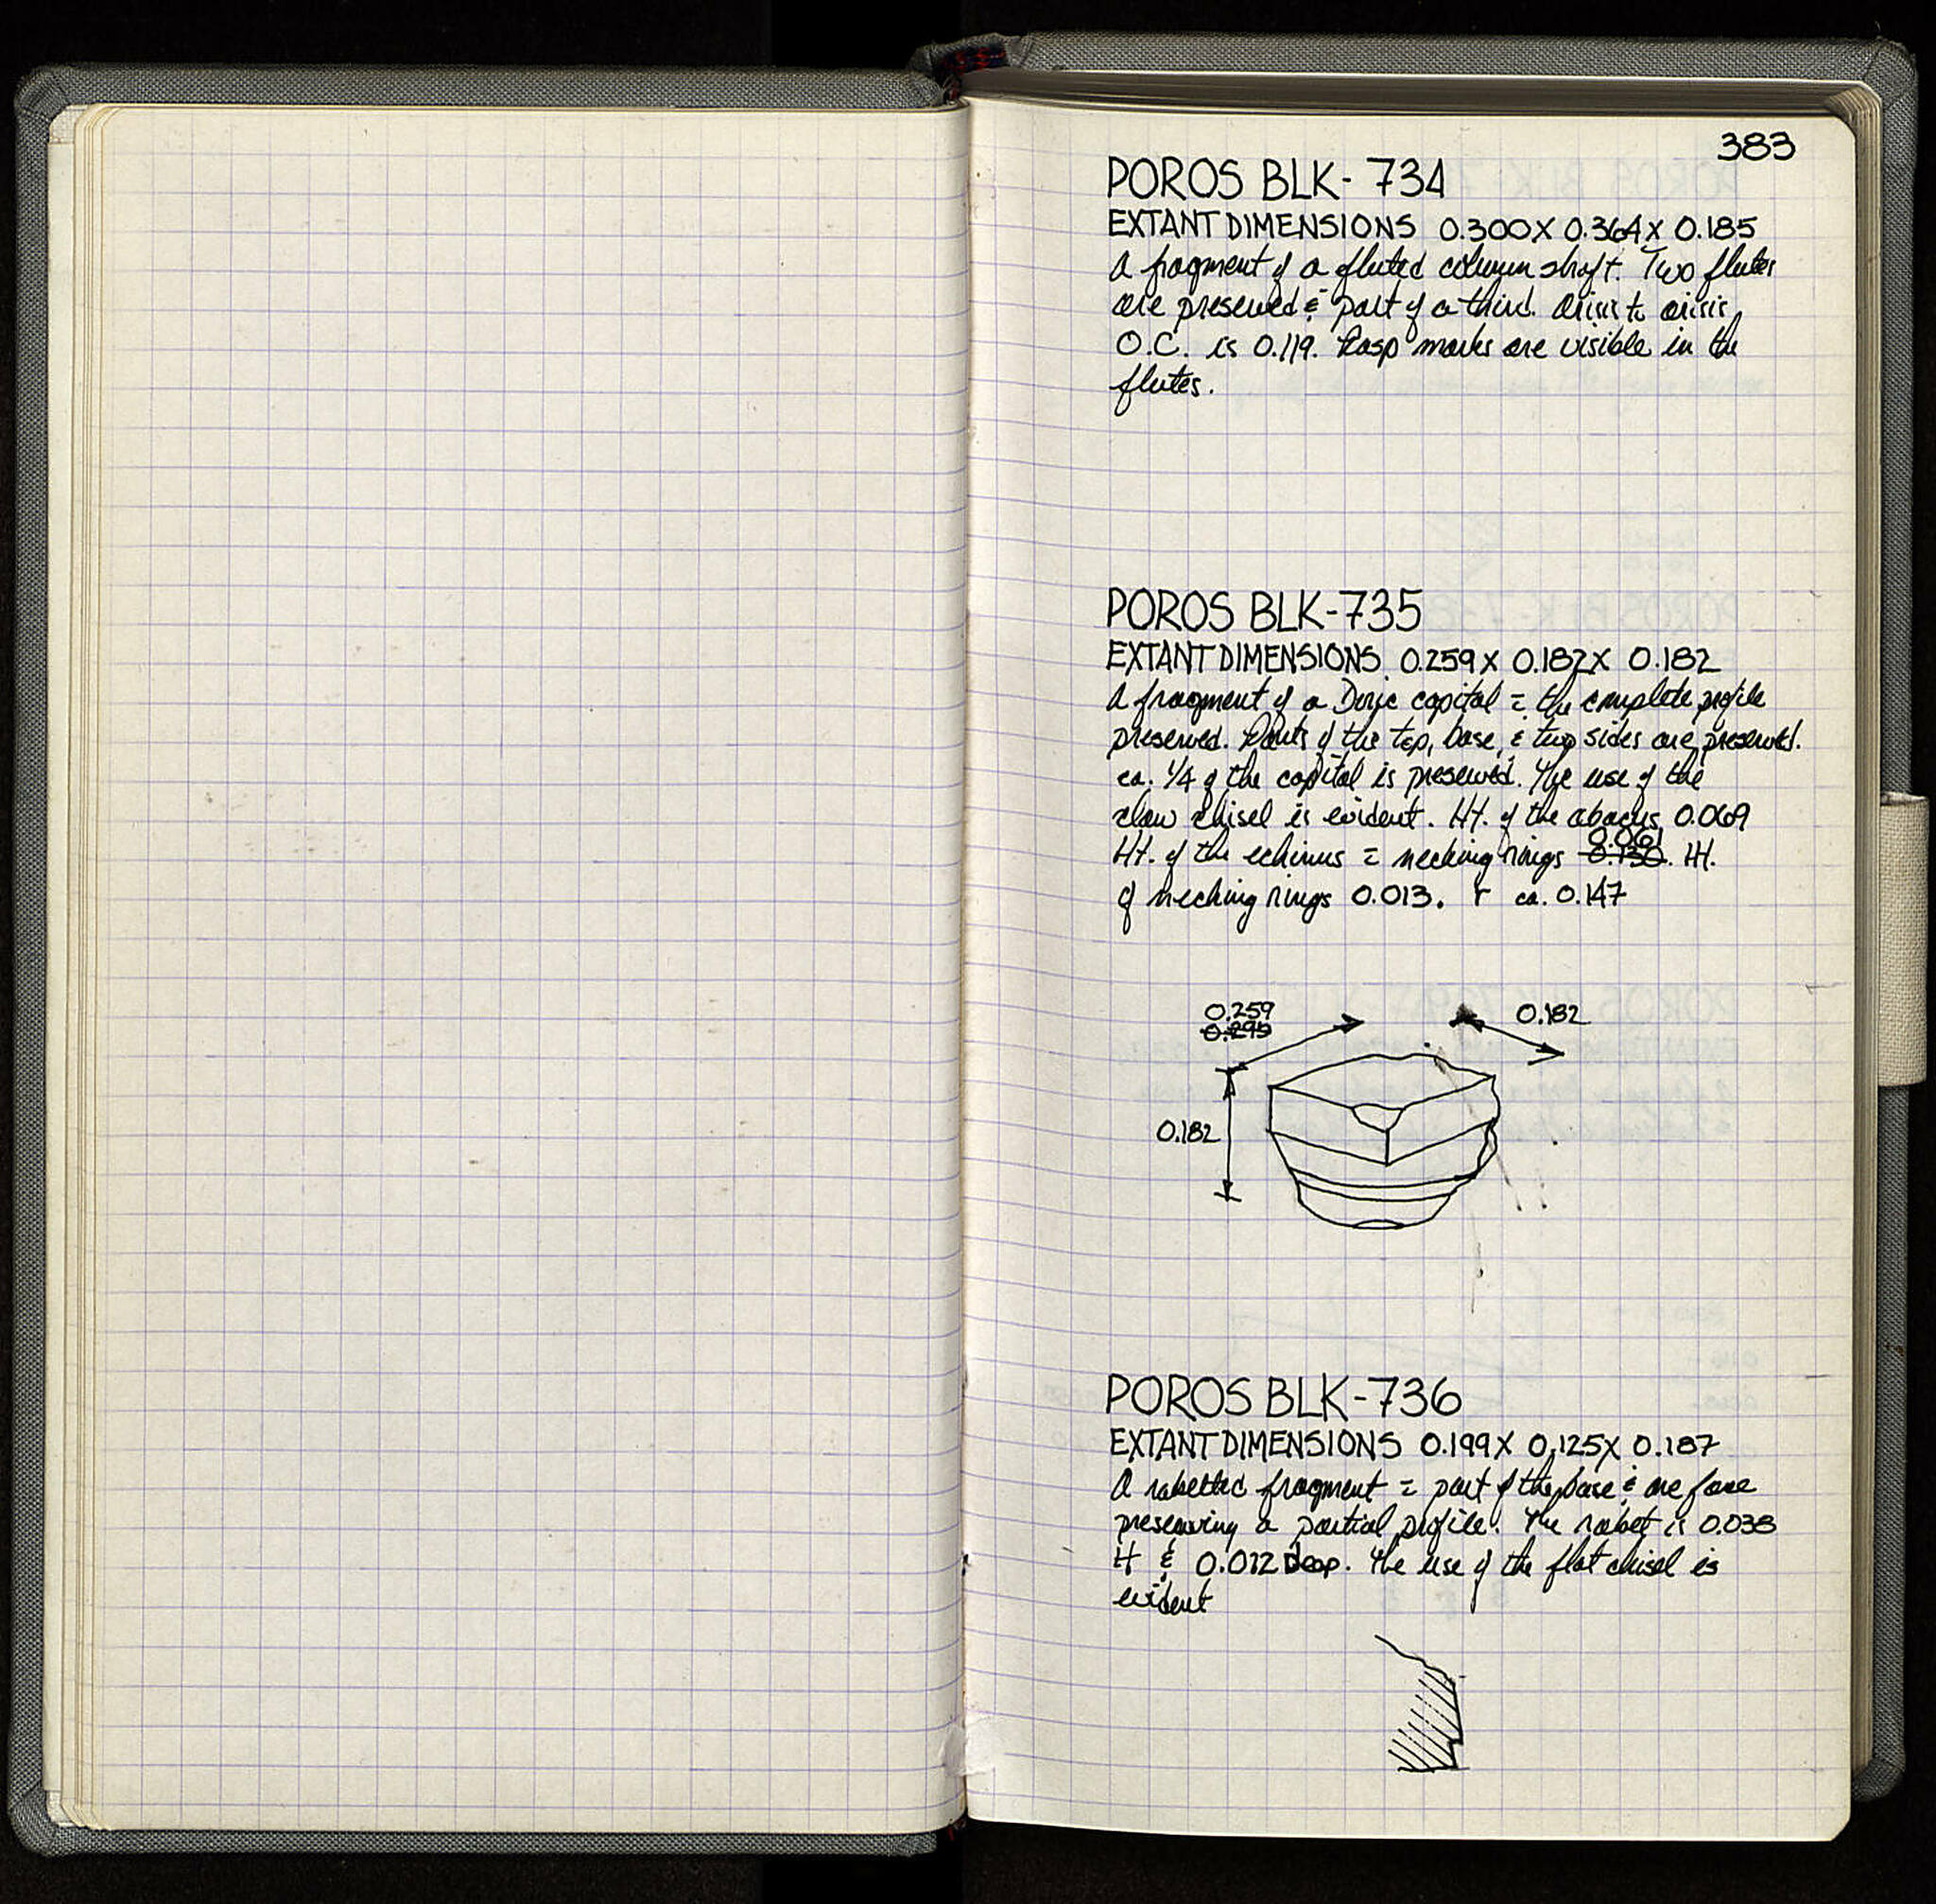 383
POROS BLK- 734
EXTANT DIMENSIONS 0.300 X 0.364 X 0.185
A fragment of a fluted column shaft. Two flutes
are preserved & part of a third. Arisis to arisis
O.C. is 0.119. Rasp marks are visible in the
flutes.
POROS BLK-735
EXTANT DIMENSIONS 0.259 X 0.182 X 0.182
A fragment of a Doric capital = the complete profile
preserved. Parts of the top, base, & two sides are preserved.
ca. 1/4 of the capital is preserved. The use of the
claw chisel is evident. Ht. of the abacus 0.069
0.061
Ht. of the echinus = necking rings 0.130. Ht.
of necking rings 0.013. r ca. 0.147
0.259
0.295
0.182
0.182
POROS BLK-736
EXTANT DIMENSIONS 0.199 X 0.125 X 0.187
A rabetted fragment = part of the base & one face
preserving a partial profile. The rabet is 0.038
H & 0.012 Deep. The use of the flat chisel is
evident